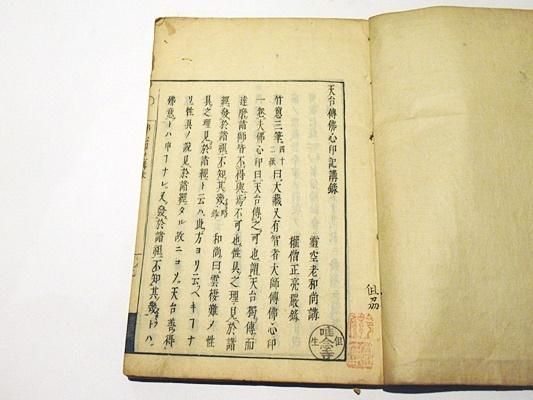 天台傳佛心印記講録
靈空老和尚講
權僧正亮嚴録
竹窓三筆四十二張曰大藏又有智者大師傳佛心印
一卷大佛心印曰天台傳之可也謂天台獨傳而
達磨諸師皆不得與焉不可也性具之理見於諸
經發於諸祖不知其幾 和尚曰雲棲難ノ性
具之理見於諸經ト云ハ此方ヨリ云ヘキコナ
リ性具ノ説見於諸經タル故ニコソ天台善得
佛意トハ申コナヒ又發於諸祖不知其幾トハ
但
唯念寺
生